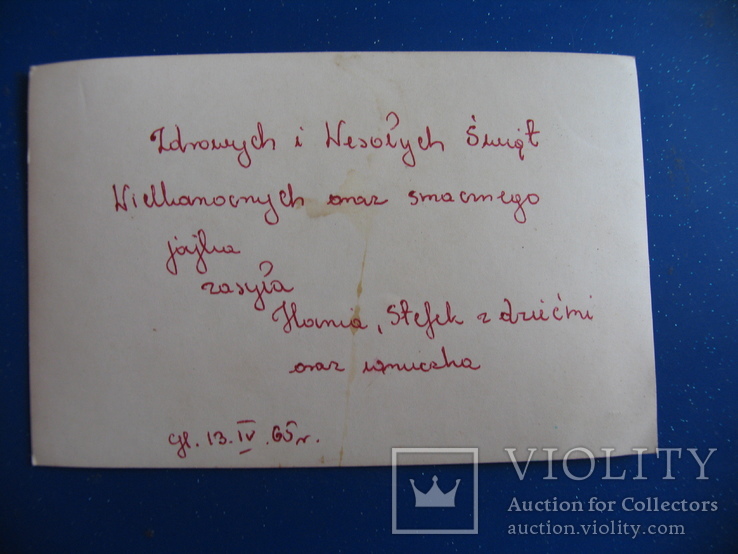 Zdrowych i Wesołych Świąt
Wielkanocnych oraz smacznego
jajka
zasyła
Hania, Stefek z dziećmi
oraz wnuczka
Gl. 13.IV.65r.
VIOLITY
Auction for Collectors
auction.violity.com